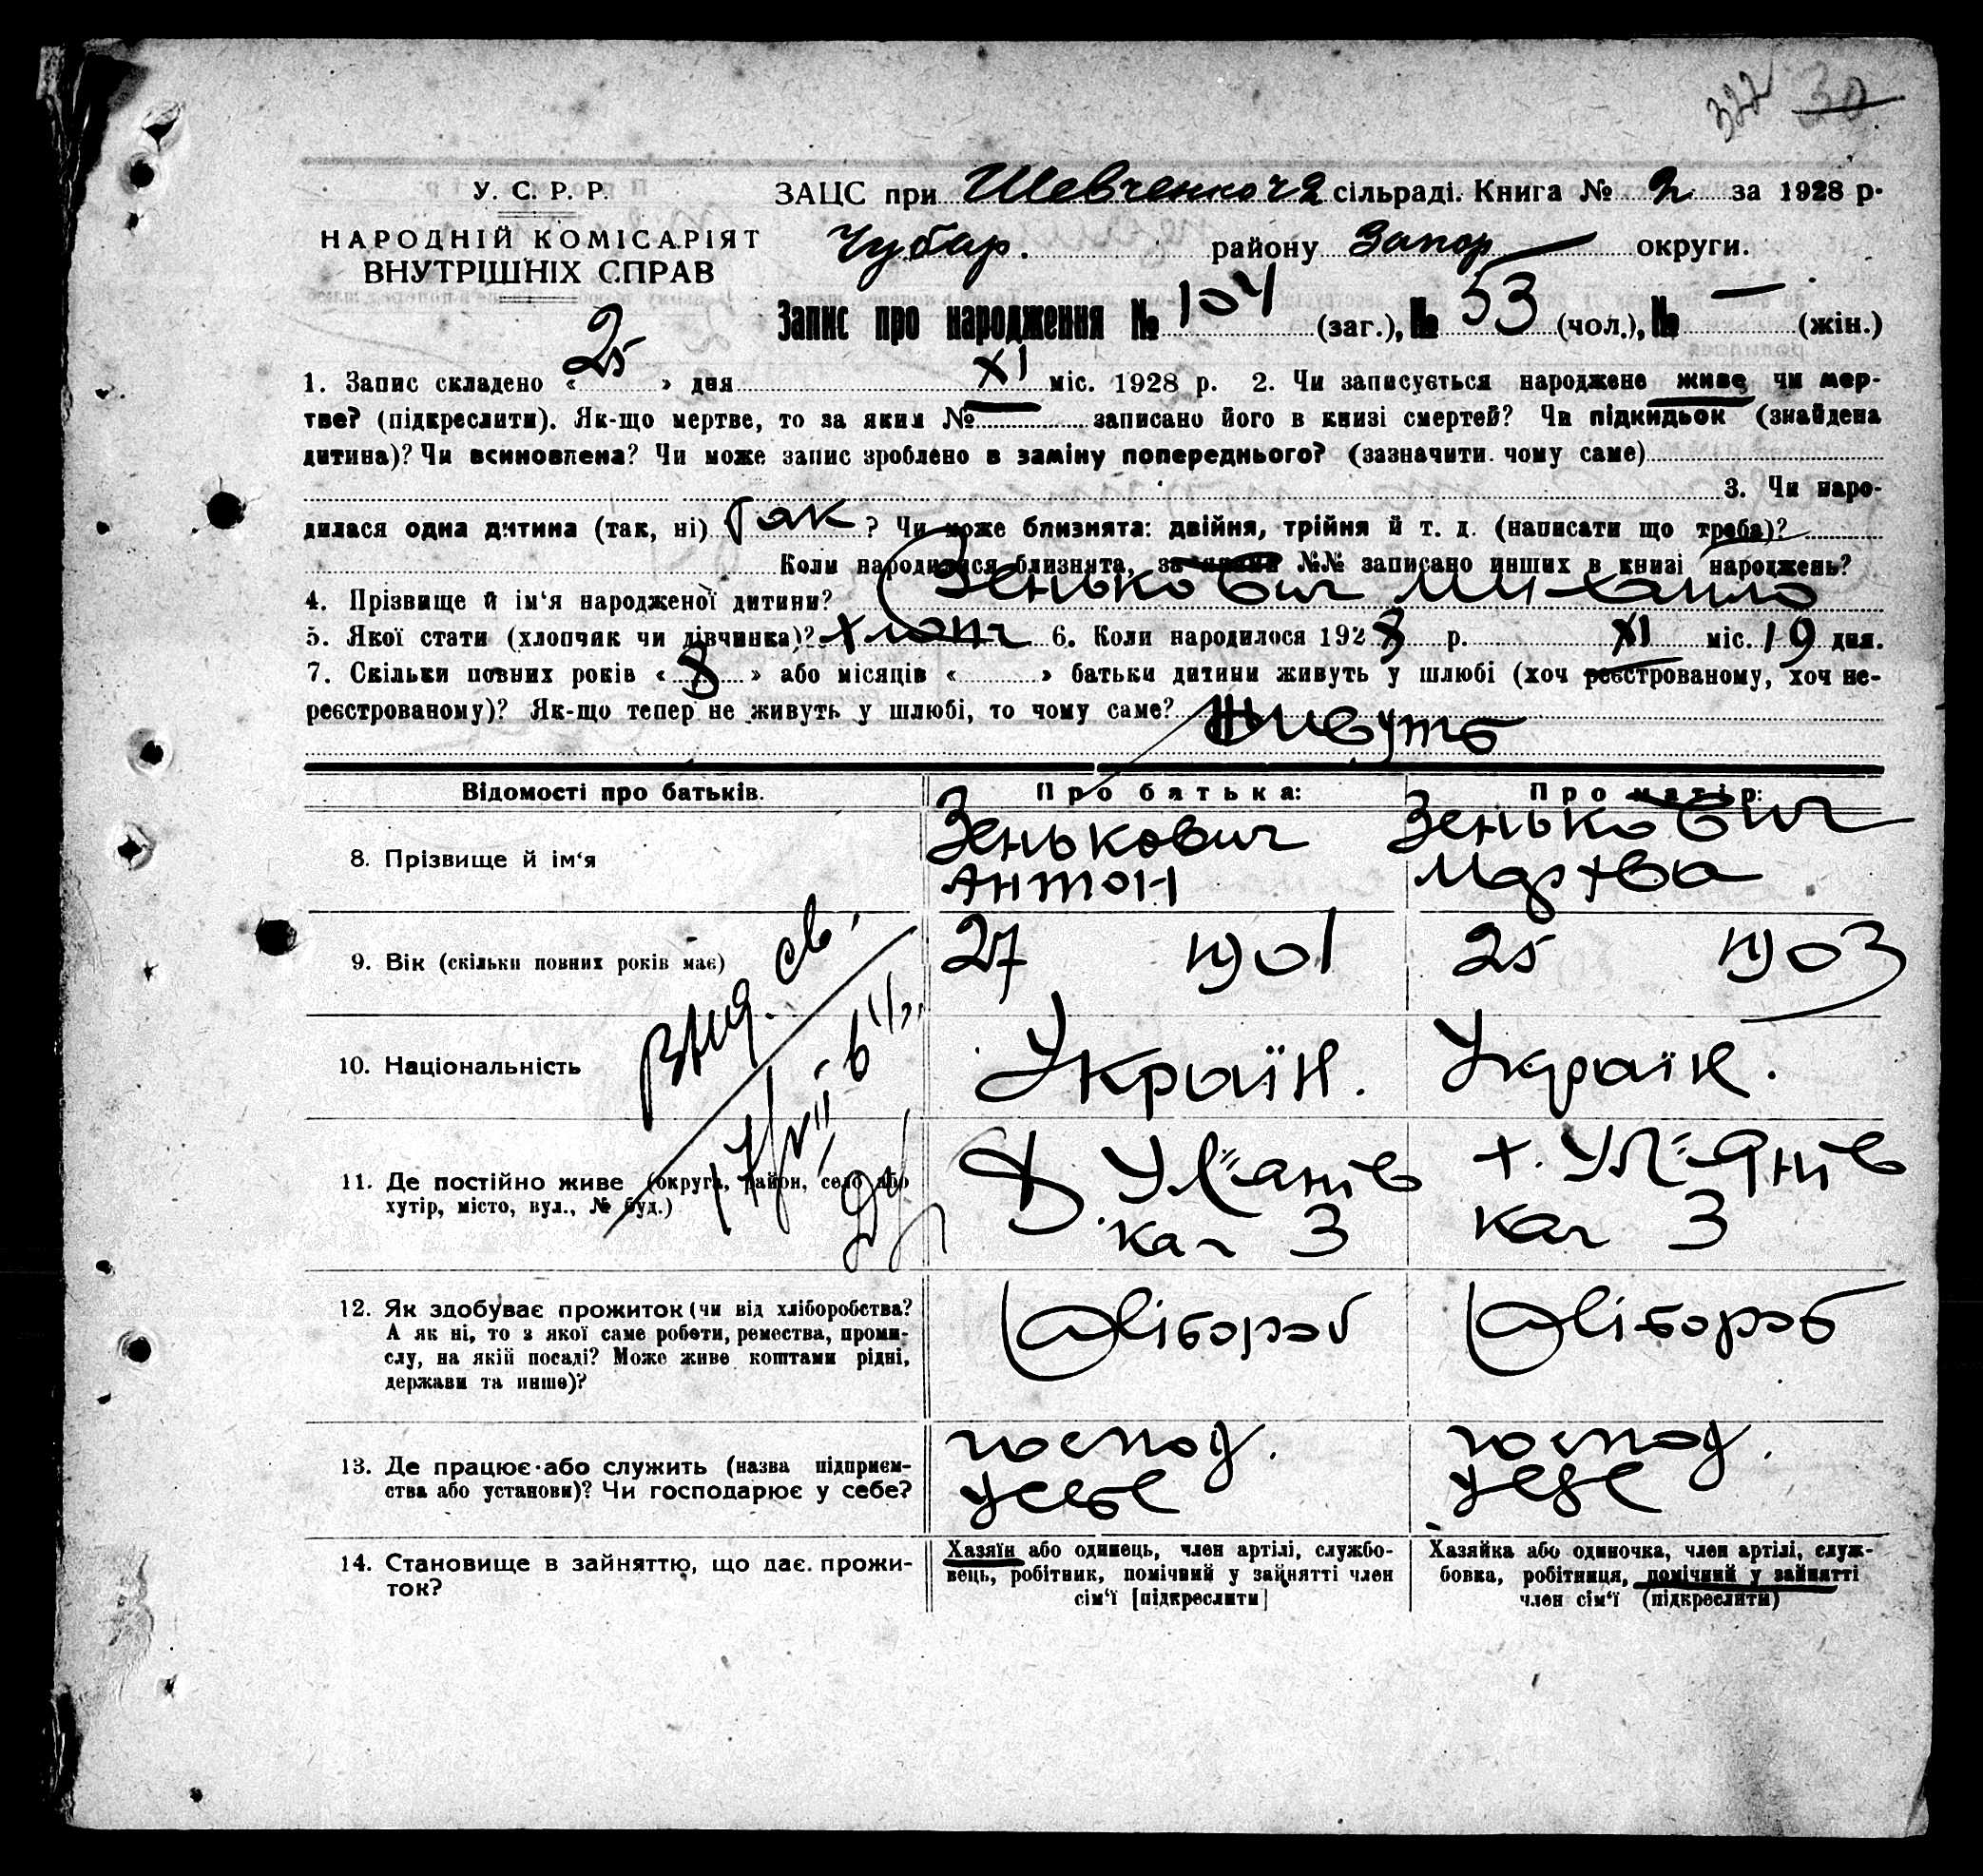 322 30
У. С. Р. Р.
НАРОДНІЙ КОМІСАРІЯТ
ВНУТРІШНІХ СПРАВ
ЗАЦС при Шевченко сільраді. Книга № 2 за 1928 р.
Чубар. району Запор округи.
Запис про народження № 104 (заг.), № 53 (чол.), № — (жін.)
1. Запис складено « 25 » дня XI міс. 1928 р. 2. Чи записується народжене живе чи мер-
тве? (підкреслити). Як-що мертве, то за яким № — записано його в книзі смертей? Чи підкидьок (знайдена
дитина)? Чи всиновлена? Чи може запис зроблено в заміну попереднього? (зазначити чому саме)
3. Чи наро-
дилася одна дитина (так, ні) Так ? Чи може близнята: двійня, трійня й т. д. (написати що треба)?
Коли народилися близнята, за яким №№ записано инших в книзі народжень?
4. Прізвище й ім‘я народженої дитини? Зенькович Михайло
5. Якої стати (хлопчяк чи дівчинка)? хлопч 6. Коли народилося 1928 р. XI міс. 19 дня.
7. Скільки повних років « 8 » або місяців « » батьки дитини живуть у шлюбі (хоч реєстрованому, хоч не-
реєстрованому)? Як-що тепер не живуть у шлюбі, то чому саме? Живуть
Відомості про батьків.
Про батька:
Про матір:
8. Прізвище й ім‘я
Зенькович
Антон
Зенькович
Мартва
9. Вік (скільки повних років має)
27 1901
25 1903
10. Національність
Украін.
Украін.
11. Де постійно живе (округа, район, село або
хутір, місто, вул., № буд.)
Ул"янів
кач 3
х. Ул"янів
кач 3
12. Як здобуває прожиток (чи від хліборобства?
А як ні, то з якої саме роботи, ремества, проми-
слу, на якій посаді? Може живе коштами рідні,
держави та инше)?
Хлібороб
Хлібороб
13. Де працює або служить (назва підприєм-
ства або установи)? Чи господарює у себе?
господ.
у себе
господ.
у себе
14. Становище в зайняттю, що дає прожи-
ток?
Хазяїн або одинець, член артілі, службо-
вець, робітник, помічний у зайнятті член
сім‘ї [підкреслити]
Хазяйка або одиночка, член артілі, служ-
бовка, робітниця, помічний у зайнятті
член сім‘ї (підкреслити)